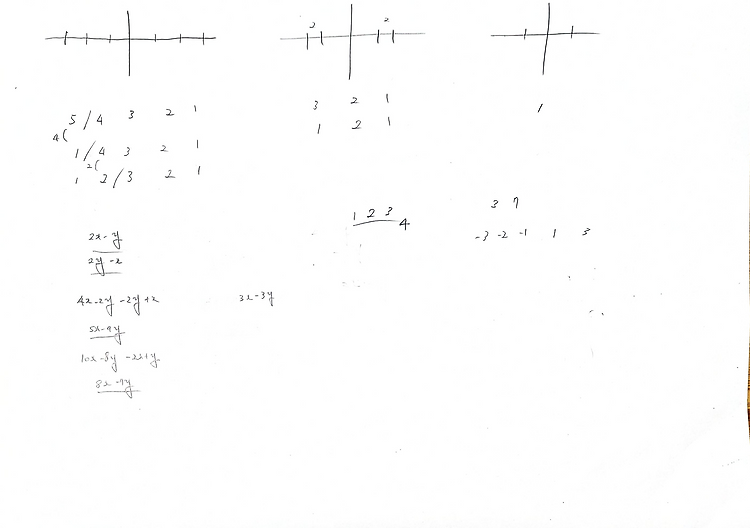 2 2
5 / 4 3 2 1
3 2 1
1
4(
1 / 4 3 2 1
1 2 1
2(
1 2 / 3 2 1
1 2 3
4
3 7
-3 -2 -1 1 3
2x - y
2y - x
4x - 2y - 2y + x
3x - 3y
5x - 4y
10x - 8y - 2x + y
8x - 7y